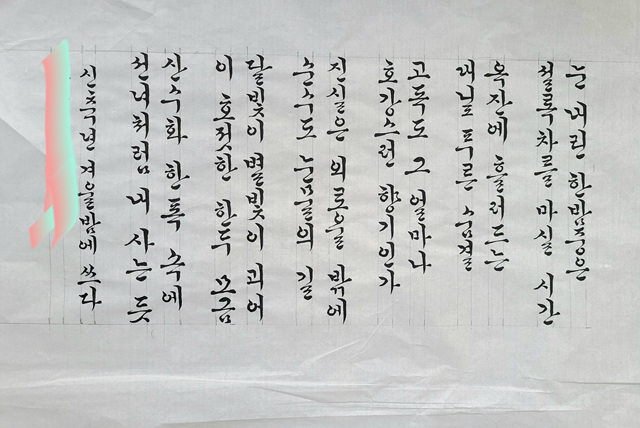 눈 내린 한밤중은
설록차를 마실 시간
옥잔에 흘러드는
대닢 푸른 숨결
고독도 그 얼마나
호강스런 향기인가
진실은 외로울 밖에
순수도 눈물의 길
달빛이 별빛이 괴어
이 호젓한 한두 모금
산수화 한 폭 속에
선녀처럼 내 사는 듯
신축년 겨울밤에 쓰다